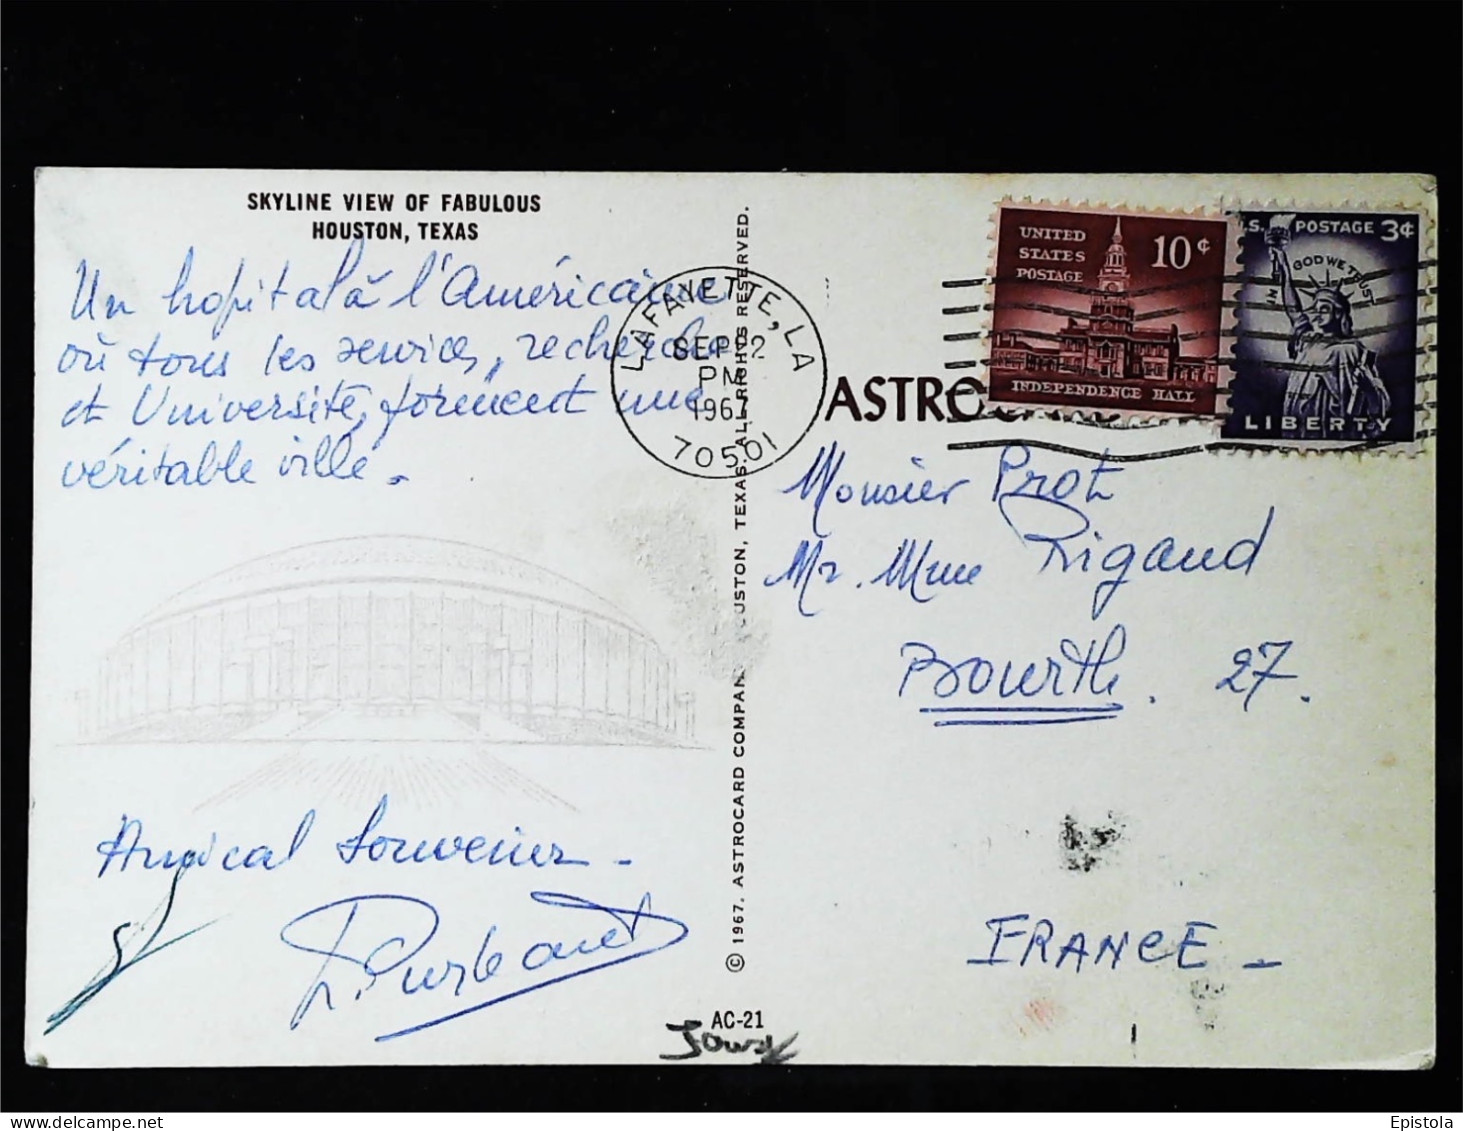 SKYLINE VIEW OF FABULOUS
HOUSTON, TEXAS
Un hopital à l'Américaine
où tous les services, recherche
et Université, forment une
véritable ville.
Amical Souvenir -
AC-21
© 1967. ASTROCARD COMPAN USTON, TEXAS. ALL RIGHTS RESERVED.
LAFAYETTE, LA
SEP 2
PM
1967
70501
UNITED
STATES
POSTAGE
10¢
INDEPENDENCE HALL
U.S. POSTAGE 3¢
IN GOD WE TRUST
LIBERTY
ASTROC
Monsieur Prot
Mr. Mme Rigaud
Bourth. 27.
FRANCE -
Epistola